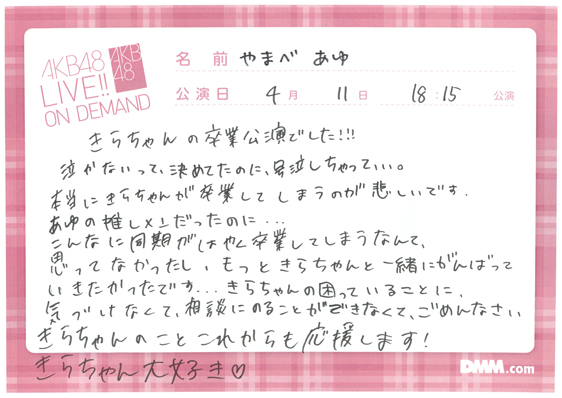 AKB48
LIVE!!
ON DEMAND
AKB
48
名 前 やまべ あゆ
公演日 4月 11日 18:15 公演
きらちゃんの卒業公演でした!!!
泣かないって、決めてたのに、号泣しちゃって、、。
本当にきらちゃんが卒業してしまうのが悲しいです.
あゆの推しメンだったのに...
こんなに同期がはやく卒業してしまうなんて、
思ってなかったし、もっときらちゃんと一緒にがんばって
いきたかったです...きらちゃんの困っていることに、
気づけなくて、相談にのることができなくて、ごめんなさい
きらちゃんのことこれからも応援します!
きらちゃん大好き♡
DMM.com